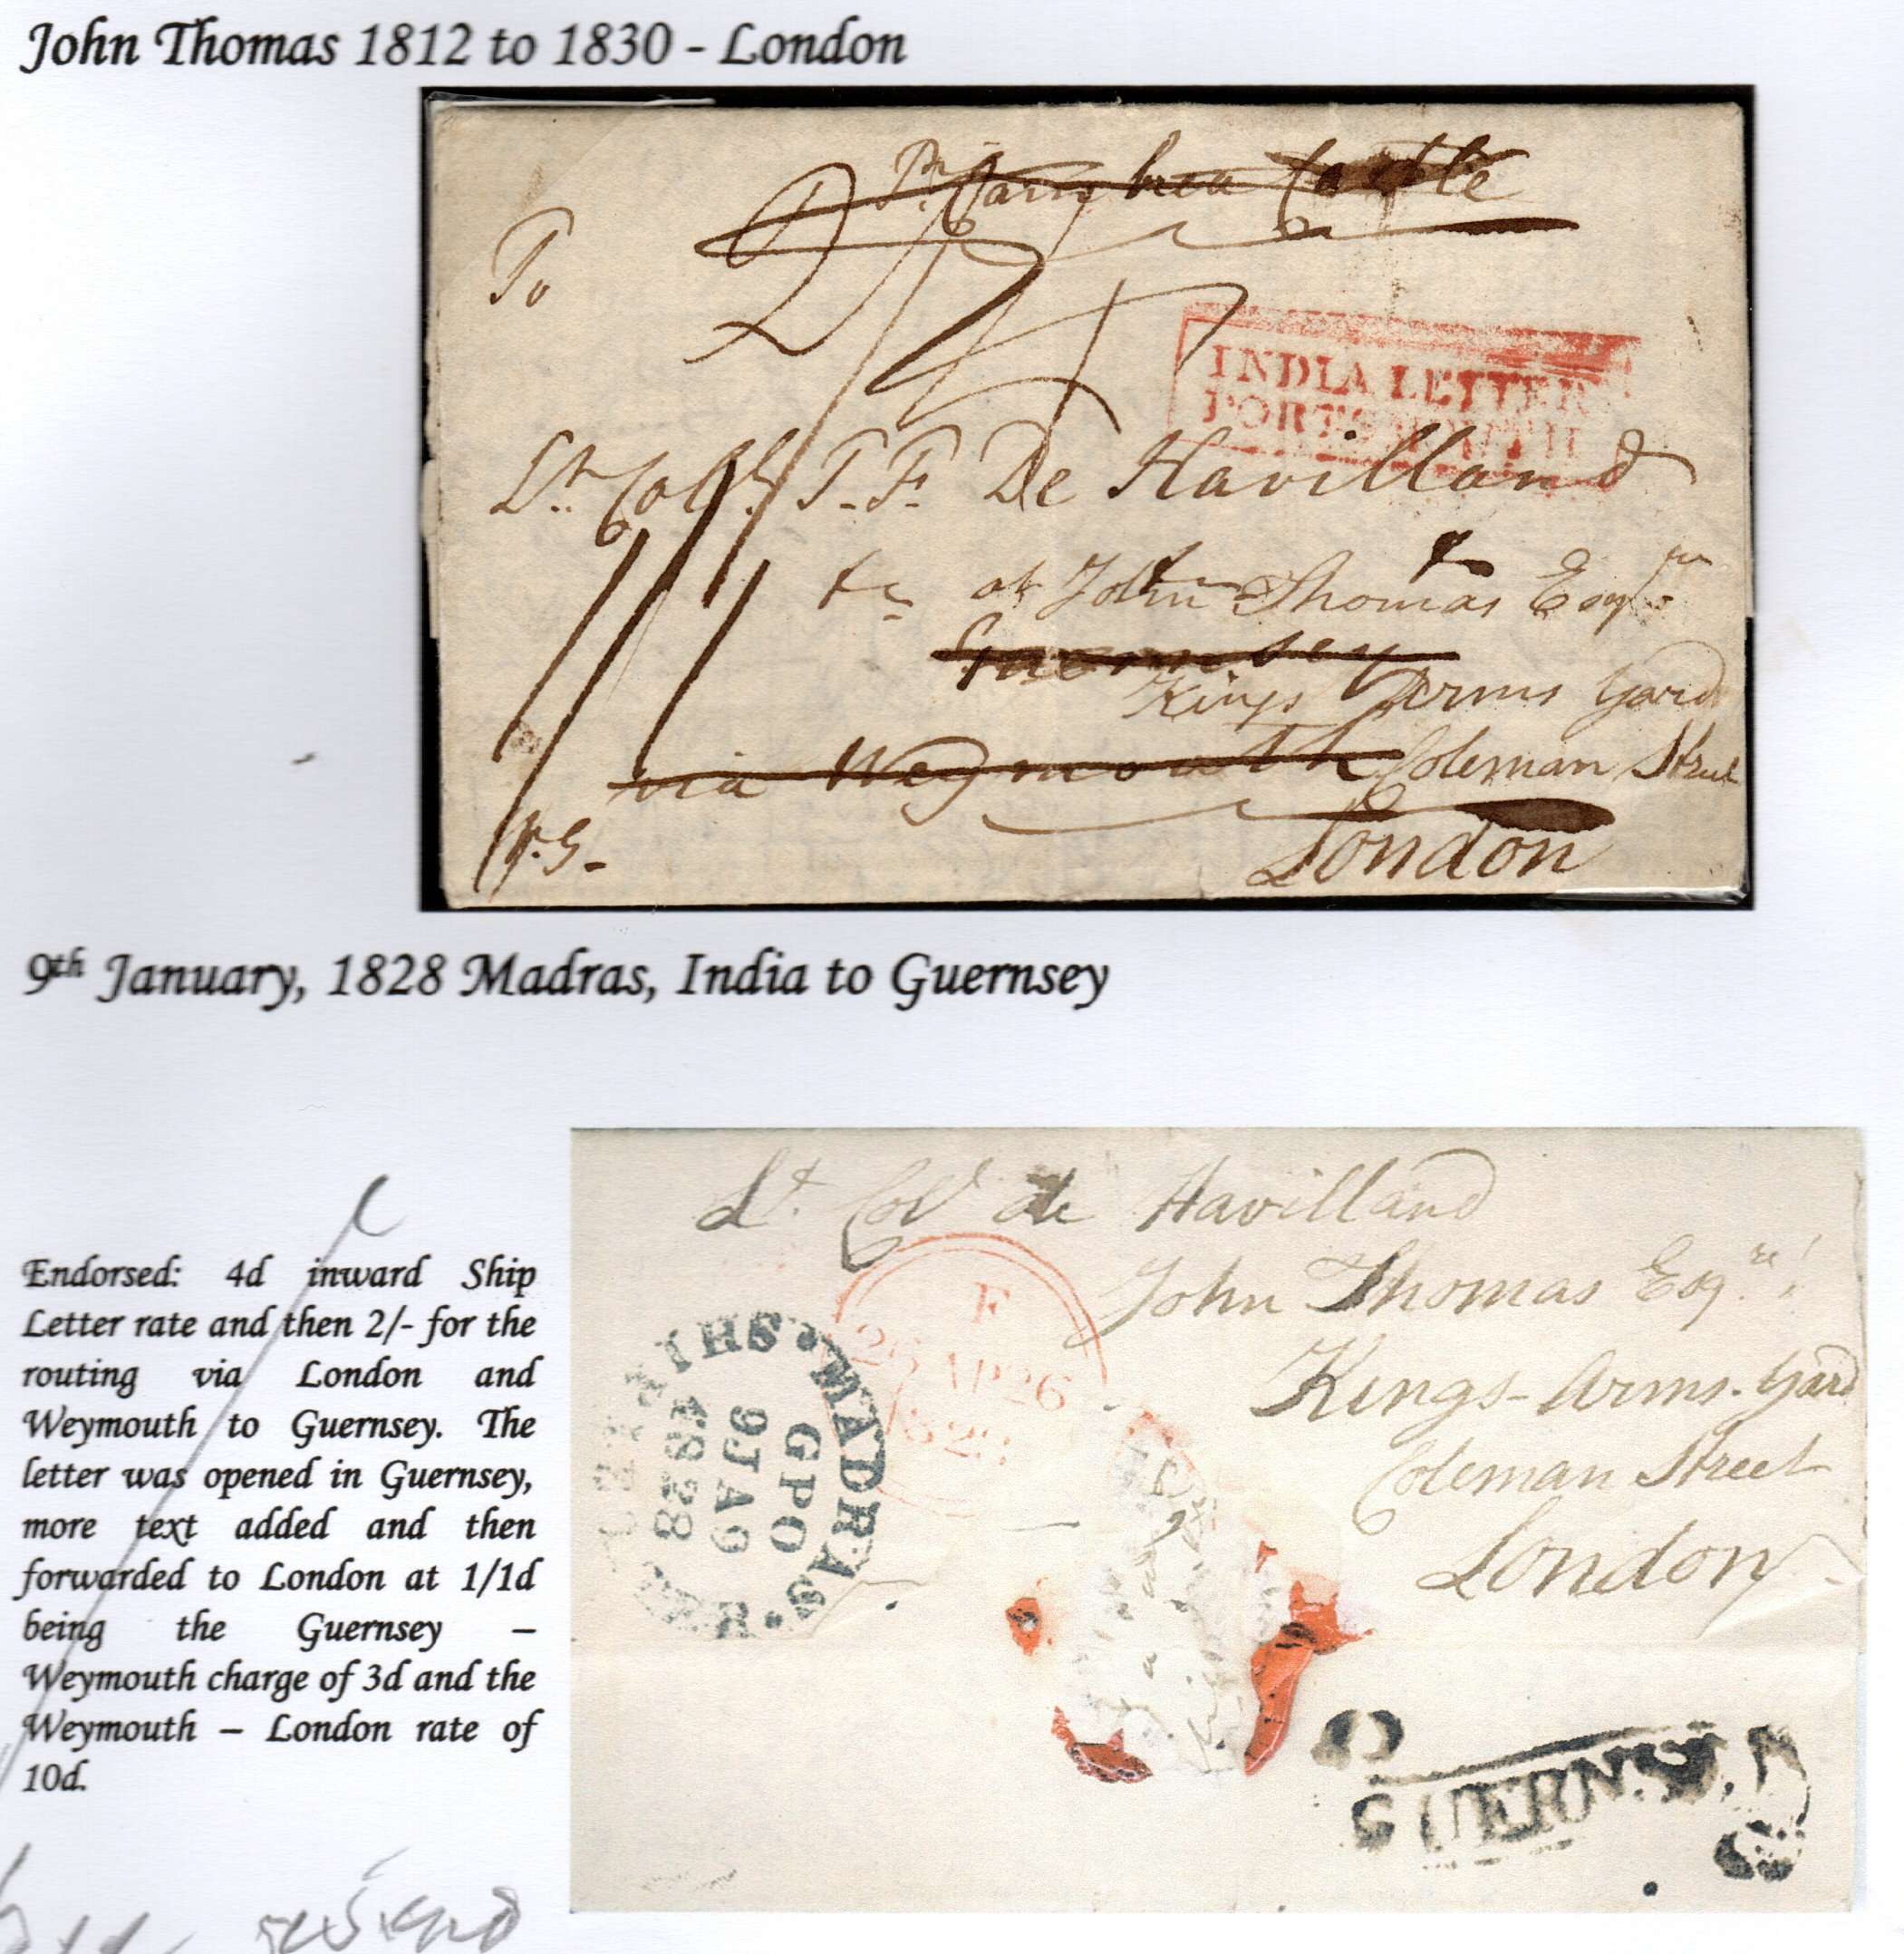 John Thomas 1812 to 1830 - London
Pr. Carn brea Castle
To
2/4
INDIA LETTER
PORTSMOUTH
Lt. Coll. T. F. De Havilland
at John Thomas Esqre
Guernsey
Kings Arms Yard
via Weymouth Coleman Street
London
1/1
9th January, 1828 Madras, India to Guernsey
Endorsed: 4d inward Ship
Letter rate and then 2/- for the
routing via London and
Weymouth to Guernsey. The
letter was opened in Guernsey,
more text added and then
forwarded to London at 1/1d
being the Guernsey –
Weymouth charge of 3d and the
Weymouth – London rate of
10d.
Lt. Col de Havilland
John Thomas Esqre
Kings-Arms-Yard
Coleman Street
London
F
26 AP 26
1828
MADRAS
GPO
9 JA 9
1828
SHIP
GUERNSEY